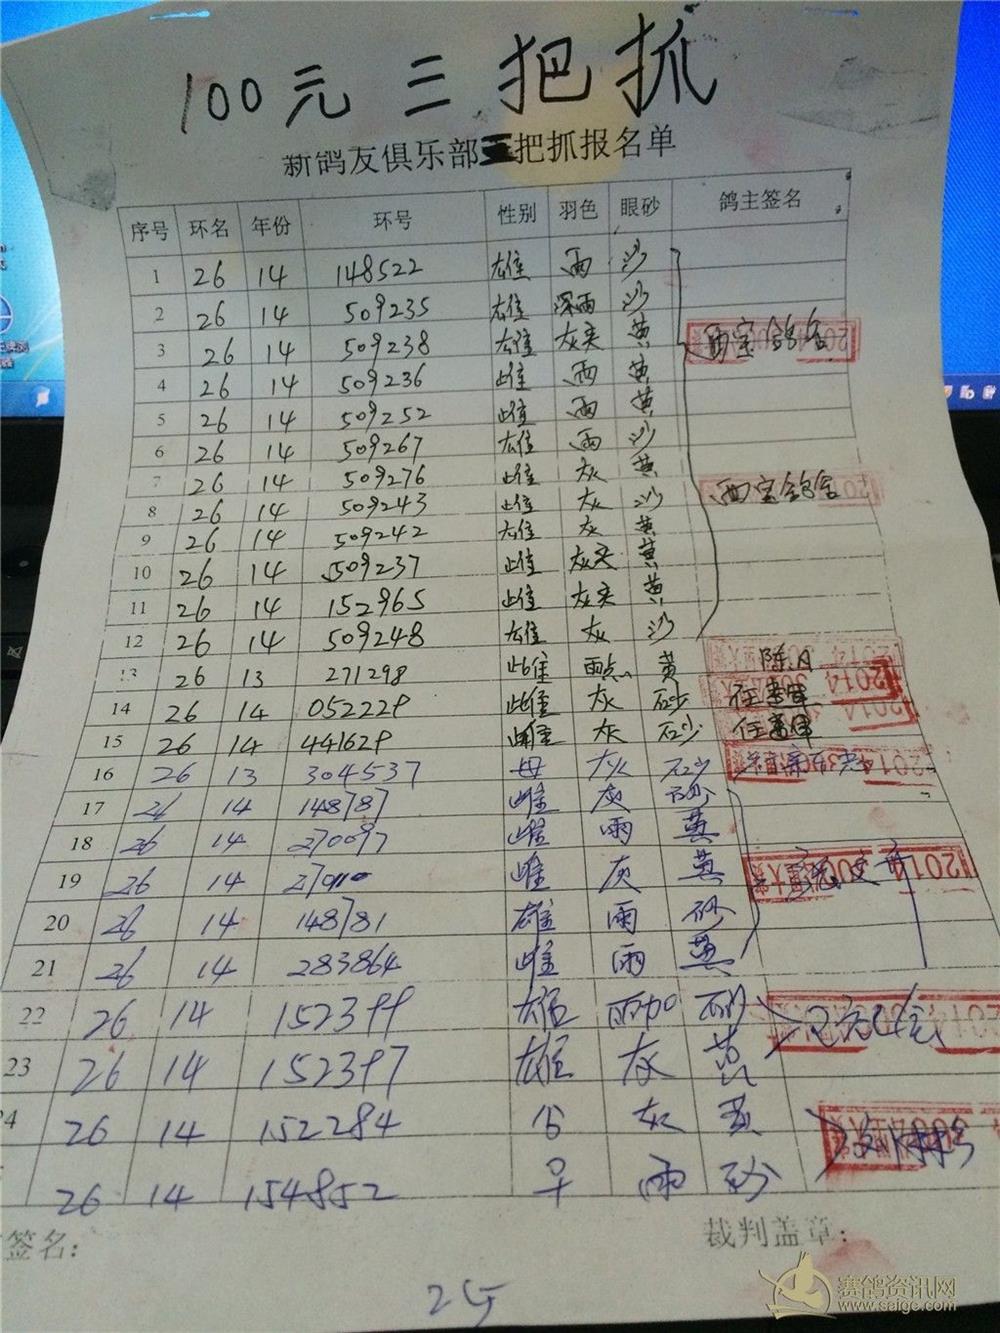 100元 三把抓
新鸽友俱乐部把抓报名单
序号 环名 年份 环号 性别 羽色 眼砂 鸽主签名
1 26 14 148522 雄 雨 沙
2 26 14 509235 雄 深雨 沙
3 26 14 509238 雄 灰夹 黄 西宝鸽舍
4 26 14 509236 雌 雨 黄
5 26 14 509252 雌 雨 黄
6 26 14 509267 雄 雨 沙
7 26 14 509276 雌 灰 黄 西宝鸽舍
8 26 14 509243 雌 灰 沙
9 26 14 509242 雄 灰 黄
10 26 14 509237 雌 灰夹 黄
11 26 14 152965 雌 灰夹 黄
12 26 14 509248 雄 灰 沙
13 26 13 271298 雌 雨点 黄
14 26 14 052229 雌 灰 砂
15 26 14 441629 雌 灰 砂
16 26 13 304537 母 灰 砂
17 26 14 148787 雌 灰 砂
18 26 14 270097 雌 雨 黄
19 26 14 雌 灰 黄 2014
20 26 14 148781 雄 雨 砂
21 26 14 283864 雌 雨 黄
22 26 14 152399 雄 雨加 砂
23 26 14 152397 雄 灰 黄
26 14 152284 公 灰 黄
26 14 154852 早 雨 砂
签名: 裁判盖章:
25
赛鸽资讯网
www.saige.com